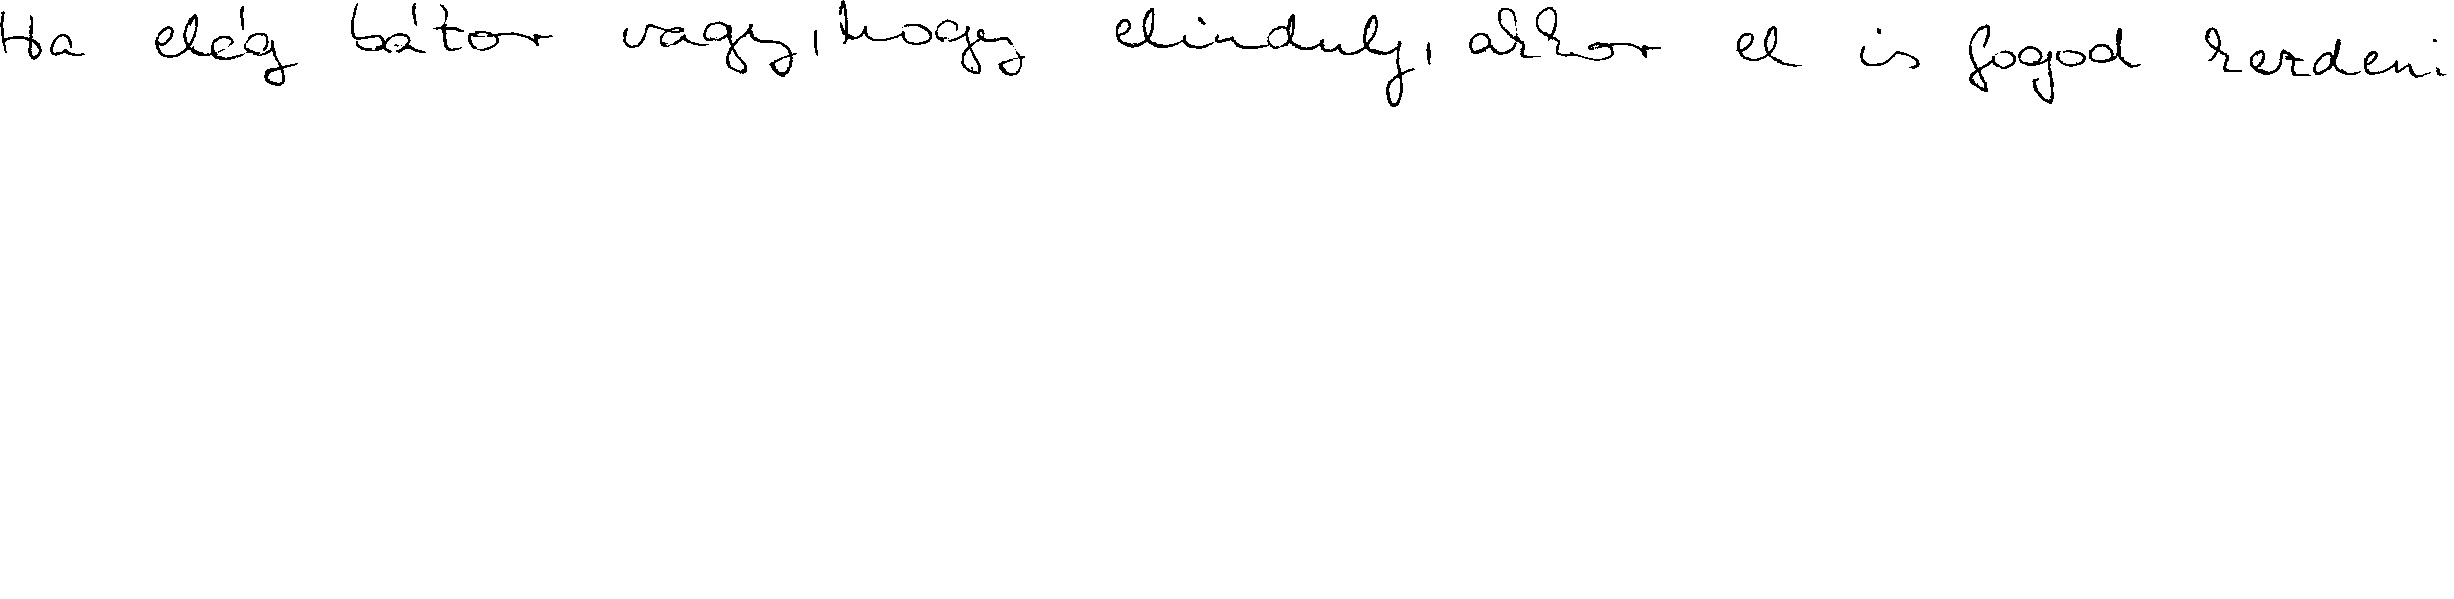 Ha elég bátor vagy, hogy elindulj, akkor el is fogod kezdeni